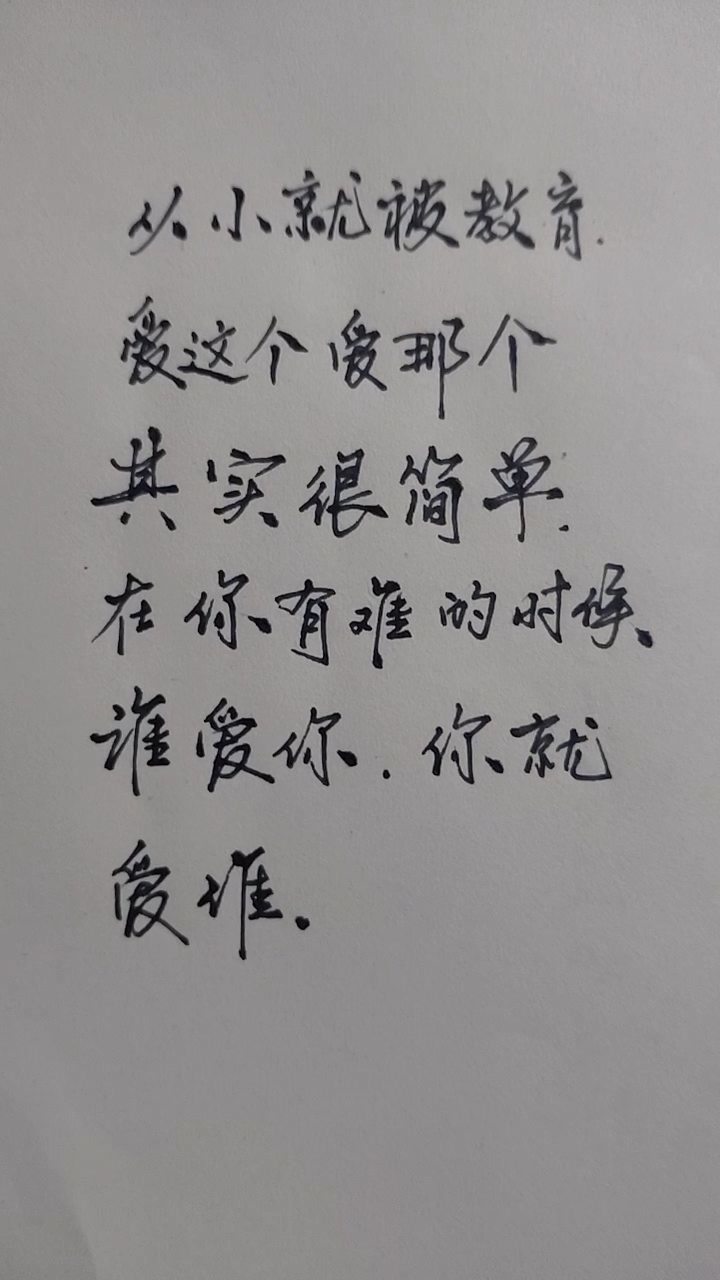 从小就被教育.
爱这个爱那个
其实很简单.
在你有难的时候、
谁爱你.你就
爱谁.